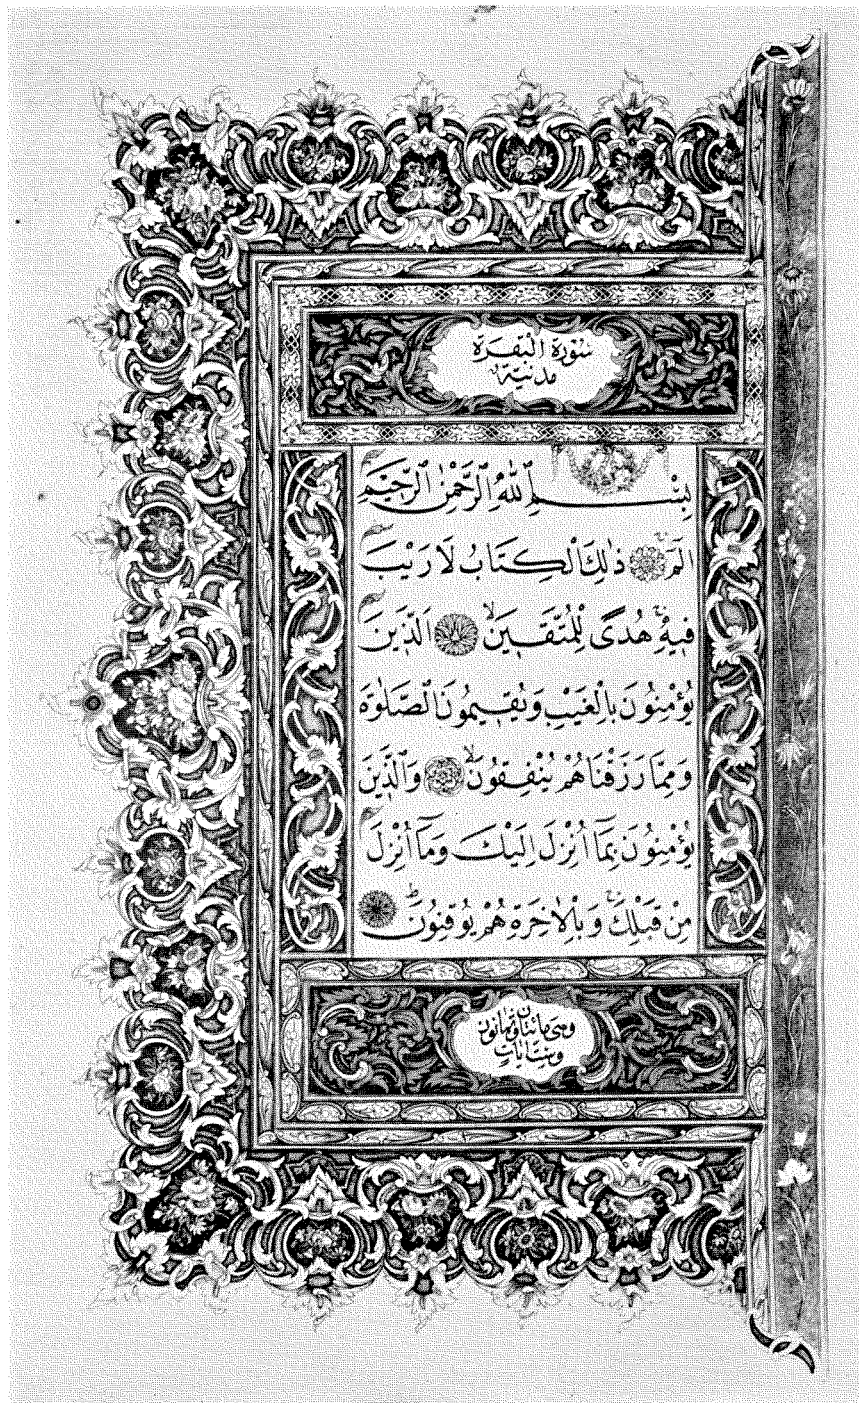 سُورَةُ الْبَقَرَةِ
مَدَنِيَّةٌ
بِسْمِ اللّٰهِ الرَّحْمٰنِ الرَّحِيْمِ
الٓمٓ ذٰلِكَ الْكِتَابُ لَا رَيْبَ
فِيهِ هُدًى لِلْمُتَّقِينَ اَلَّذِينَ
يُؤْمِنُونَ بِالْغَيْبِ وَيُقِيمُونَ الصَّلٰوةَ
وَمِمَّا رَزَقْنَاهُمْ يُنْفِقُونَ وَالَّذِينَ
يُؤْمِنُونَ بِمَآ اُنْزِلَ اِلَيْكَ وَمَآ اُنْزِلَ
مِنْ قَبْلِكَ وَبِالْاٰخِرَةِ هُمْ يُوقِنُونَ
وهى مائتان وثمانون
وست ايات